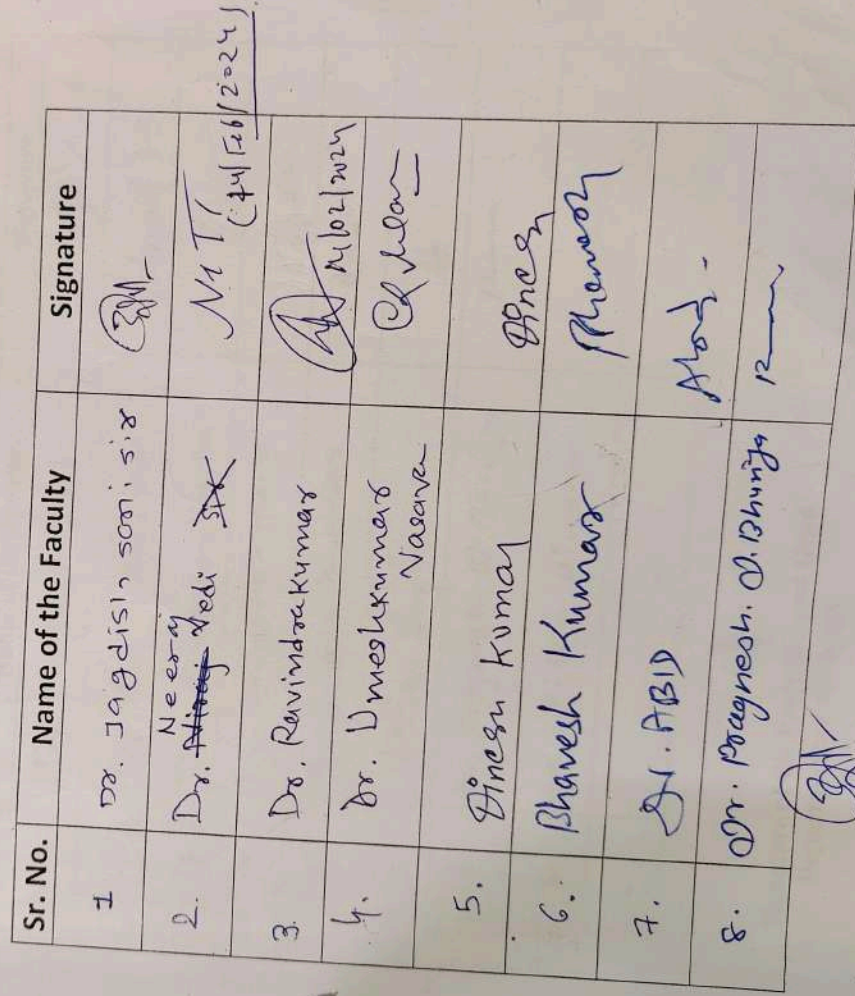 Sr. No. Name of the Faculty Signature
1 Dr. Jagdish soni sir
Neeraj
2. Dr. Vedi
(14/Feb/2024)
3. Dr. Ravindrakumar 14/02/2024
4. Dr. Umeshkumar
Vasava
5. Dinesh Kumar Dinesh
6. Bhavesh Kumar Bhavesh
7. Dr. ABID
8. Dr. Pragnesh. D.